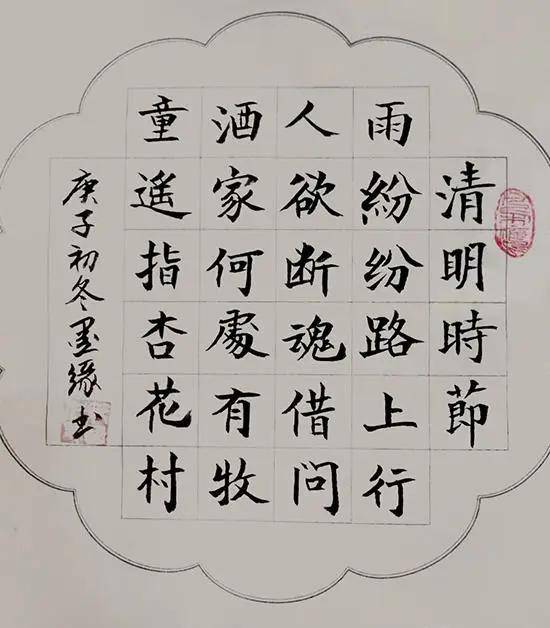 清明時節
雨紛紛路上行
人欲断魂借问
酒家何處有牧
童遥指杏花村
庚子初冬墨緣书